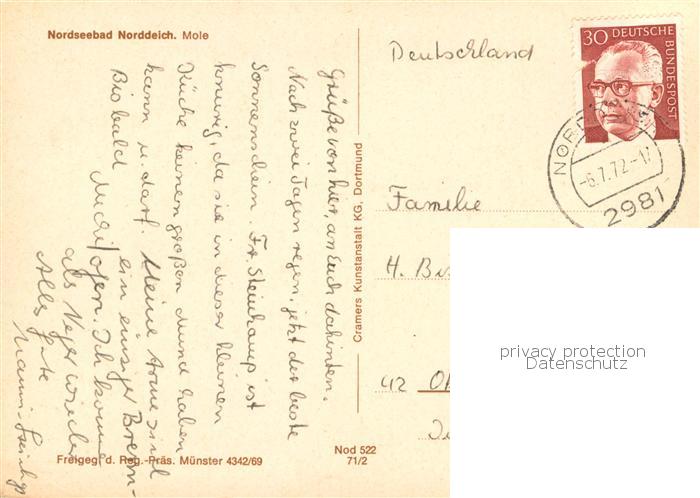 Nordseebad Norddeich. Mole
Grüße von hier, an Euch dahinten.
Nach zwei Tagen regen, jetzt der beste
Sonnenschein. Fr. Steinkamp ist
knurrig, da sie in dieser kleinen
Küche keinen großen Mund haben
kann u. darf. Meine Arme sind
ein einziger Brenn-
Bis bald
Ich komm
als Neger wieder
Alles gute
Freigeg. d. Reg.-Präs. Münster 4342/69
Nod 522
71/2
Cramers Kunstanstalt KG. Dortmund
Deutschland
30 DEUTSCHE
BUNDESPOST
-6.7.72-17
2981
Familie
H.
42
privacy protection
Datenschutz